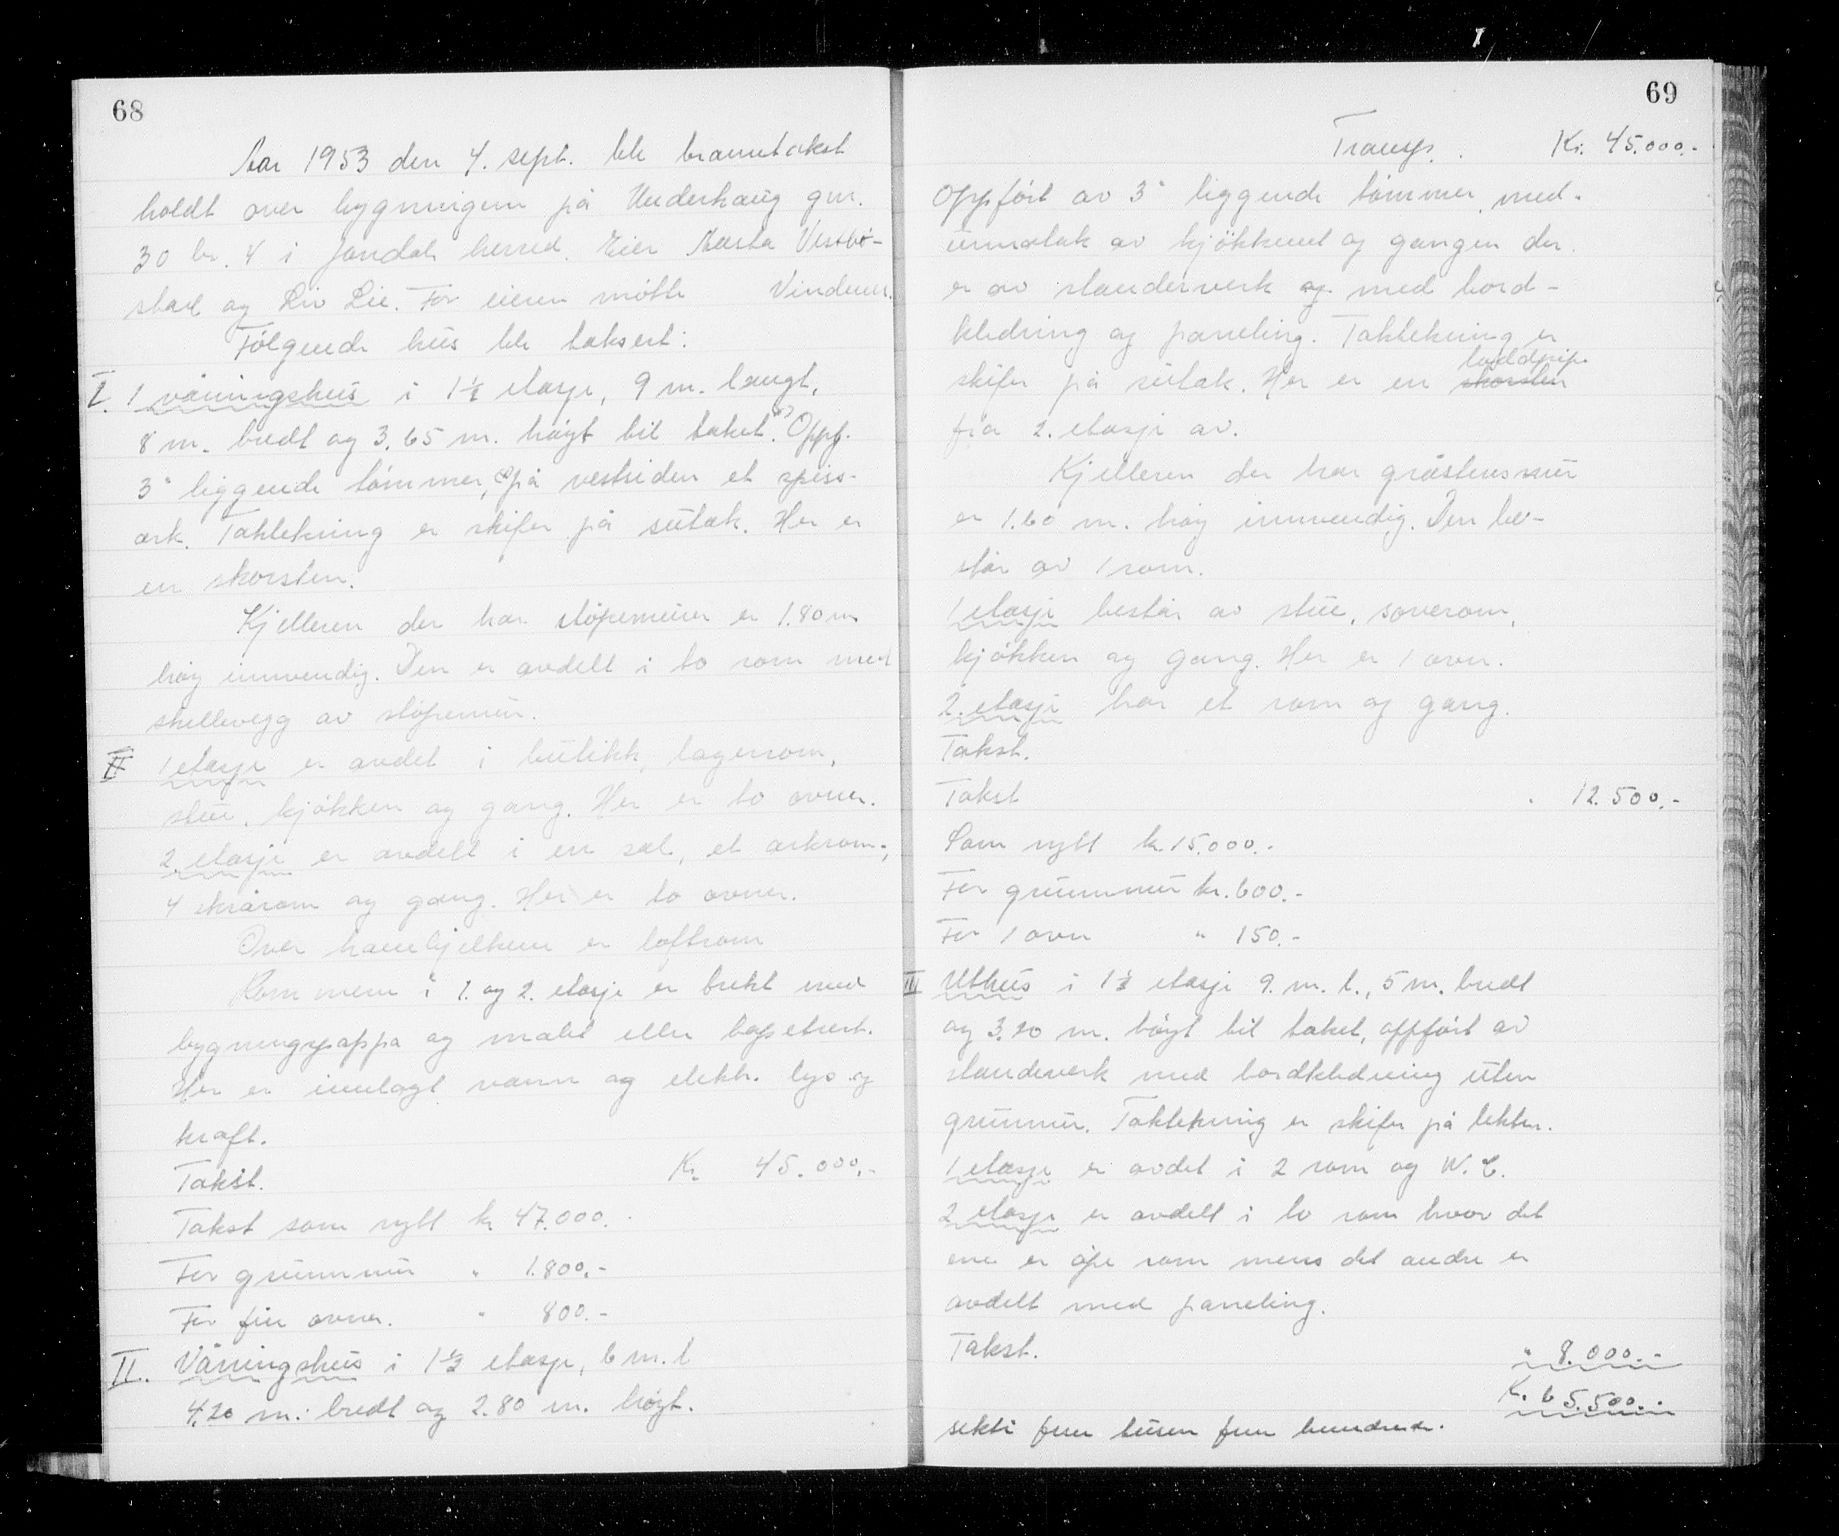 68
Aar 1953 den 4. sept. ble branntakst
holdt over bygningene på Underhaug gnr.
30 br. 4 i Jondal herred. Eier Aasta Vestbø-
stad og Liv Lie. For eieren møtte Vindenes.
Følgende hus ble taksert:
I. 1 våningshus i 1½ etasje, 9 m. langt,
8 m. bredt og 3,65 m. høgt til taket. Oppf.
3" liggende tømmer, på vestsiden et spiss-
ark. Taktekning er skifer på sutak. Her er
en skorsten.
Kjelleren der har støpemurer er 1.80 m
høg innvendig. Den er avdelt i to rom med
skellevegg av støpemur.
1 etasje er avdet i butikk, lagerrom,
stue, kjøkken og gang. Her er to ovner.
2 etasje er avdelt i en sal, et arkrom,
4 skrårom og gang. Her er to ovner.
Over hanebjelkene er loftrom
Rommene i 1. og 2. etasje er trekt med
bygningspappa og malet eller tapetsert.
Her er innlagt vann og elektr. lys og
kraft.
Takst. Kr. 45.000.-
Takst som nytt kr 47.000.-
For grunnmur " 1.800.-
For fire ovner. " 800.-
II. Våningshus i 1½ etasje, 6 m. l
4,20 m. bredt og 2.80 m. høgt.
69
Transp. Kr. 45.000.-
Oppført av 3" liggende tømmer, med-
unntak av kjøkkenet og gangen der
er av standerverk og med bord-
kledning og paneling. Taktekning er
skifer på sutak. Her er en skorsten
fra 2. etasje av.
Kjelleren der har gråstensmur
er 1.60 m. høg innvendig. Den be-
står av 1 rom.
1 etasje består av stue, soverom,
kjøkken og gang. Her er 1 ovn.
2. etasje har et rom og gang.
Takst.
Takst " 12.500.-
Som nytt kr. 15.000.-
For grunnmur kr. 600.-
For 1 ovn " 150.-
III Uthus i 1½ etasje 9. m. l., 5 m. bredt
og 3,20 m. høgt til taket, oppført av
standerverk med bordkledning uten
grunnmur. Taktekning er skifer på lekter.
1 etasje er avdet i 2 rom og W.C.
2 etasje er avdelt i to rom hvor det
ene er ope rom mens det andre er
avdelt med paneling.
Takst. " 8.000.-
Kr. 65.500.-
seksti fem tusen fem hundrede.